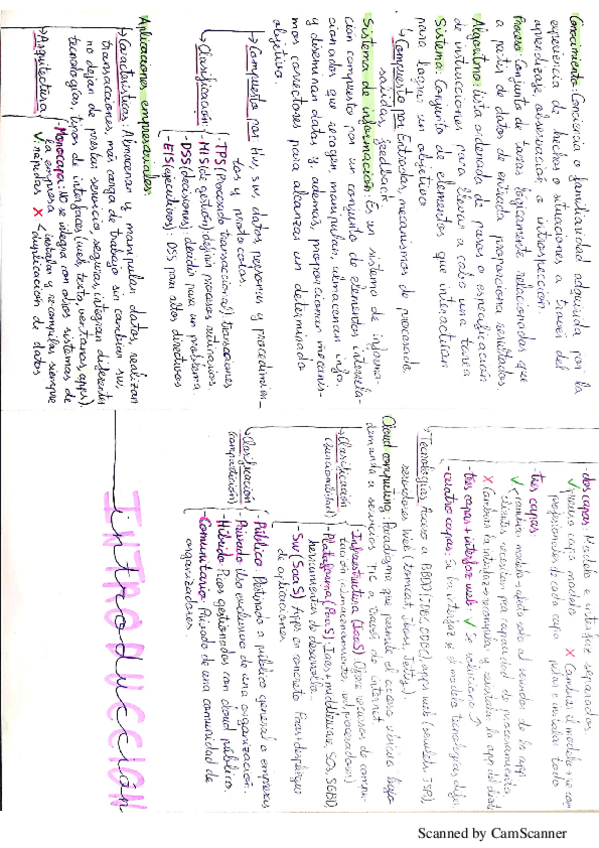 INTRODUCCIÓN
introducción
Conocimiento: Conciencia o familiaridad adquirida por la
experiencia de hechos o situaciones a través del
aprendizaje, observación o introspección.
Proceso: Conjunto de tareas, lógicamente relacionadas que
a partir de datos de entrada proporciona resultados.
Algoritmo: lista ordenada de pasos o especificación
de instrucciones para llevar a cabo una tarea
Sistema: Conjunto de elementos que interactúan
para lograr un objetivo
↳ Compuesto por: Entradas, mecanismos de procesado
salidas, feedback
Sistema de información: Es un sistema de informa-
ción compuesto por un conjunto de elementos interrela-
cionados que recogen, manipulan, almacenan info.
y diseminan datos y además, proporcionan mecanis-
mos correctores para alcanzar un determinado
objetivo.
↳ Compuesto por: Hw, sw, datos, personas y procedimien-
tos y protocolos.
↳ Clasificación:
- TPS (Procesado transaccional): transacciones
- MIS (de gestión): procesos rutinarios
- DSS (decisiones): decidir para un problema
- EIS (ejecutivos): DSS para altos directivos
Aplicaciones empresariales:
↳ Características: Almacenar y manipular datos, realizan
transacciones, más carga de trabajo sin cambiar sw,
no dejan de prestar servicio, seguras, integran diferentes
tecnologías, tipos de interfaces (web, texto, ventanas, apps).
↳ Arquitectura
- Monocapa: No se integra con otros sistemas de
la empresa
V: rápidas X instalar y recompilar siempre
duplicación de datos
- dos capas: Modelo e interfaz separados
X Cambias el modelo
profesionales de cada capa
- tres capas:
✓ cambias modelo solo al servidor de la app
clientes necesitan poca capacidad de procesamiento
X Cambias la interfaz
- tres capas + interfaz web: ✓ Se soluciona
- cuatro capas: Se
↳ Tecnologías: Acceso a BBDD (JDBC, ODBC), apps web (servlets, JSP),
servidores web (tomcat, Jboss, Jetty)
Cloud computing: Paradigma que permite el acceso ubicuo bajo
demanda a servicios TIC a través de internet.
↳ Clasificación
(funcionalidad)
- Infraestructura (IaaS): Ofrece recursos de compu-
tación (almacenamiento, procesadores)
- Plataforma (PaaS): Iaas + middleware, SO, SGBD,
herramientas de desarrollo.
- Sw (SaaS): Apps en concreto Paas + despliegue
de aplicaciones
↳ Clasificación
(compartición)
- Público: Destinado a público general o empresas
- Privado: Uso exclusivo de una organización.
- Híbrido: Picos gestionados con cloud público.
- Comunitario: Privado de una comunidad de
organizaciones.
Scanned by CamScanner